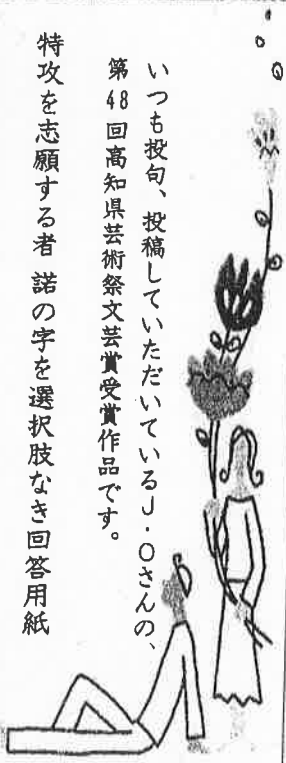 いつも投句、投稿していただいているJ・Oさんの、
第48回高知県芸術祭文芸賞受賞作品です。
特攻を志願する者 諾の字を選択肢なき回答用紙